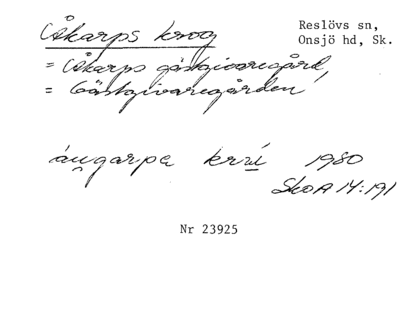 Åkarps krog
Reslövs sn,
Onsjö hd, Sk.
= Åkarps gästgivaregård,
= Gästgivaregården
áu̯garpa krú 1980
SkOA 14:191
Nr 23925